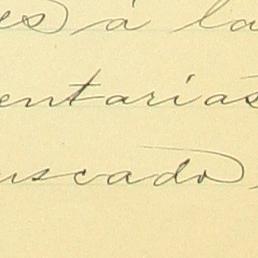 es á la
entarias
uscado,